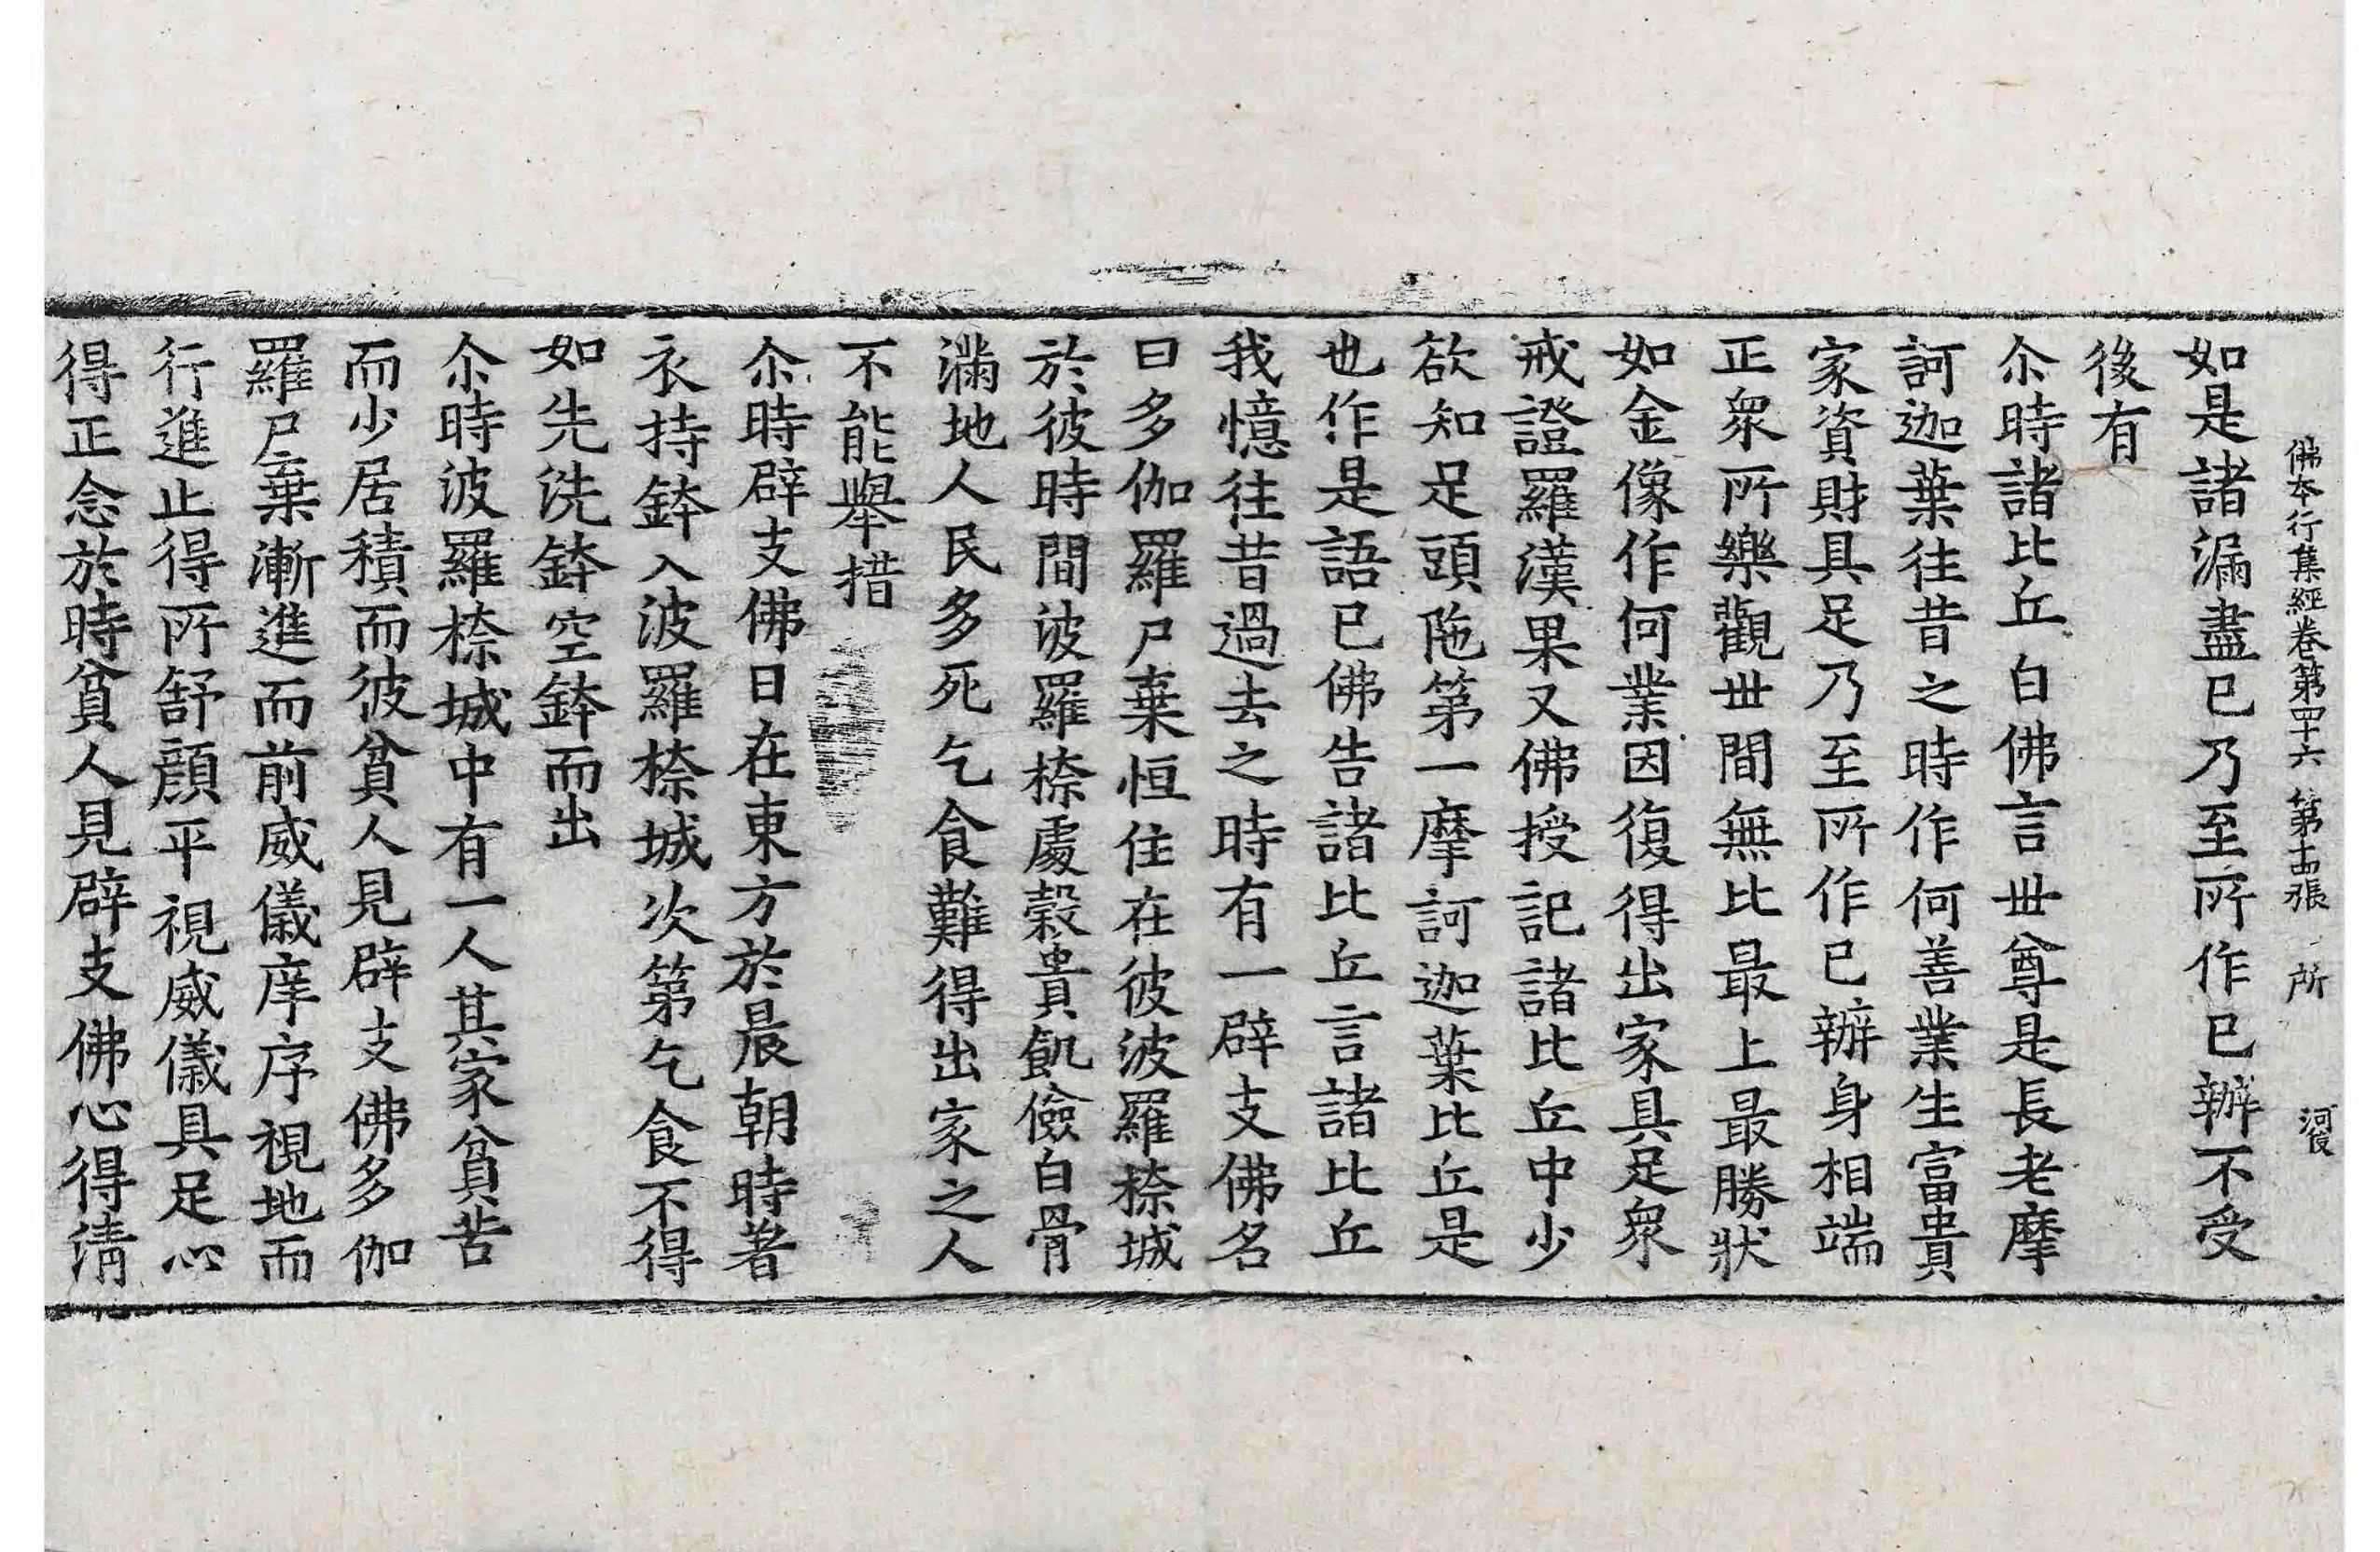 佛本行集經卷第四十六 第十四張 所 河俊
如是諸漏盡已乃至所作已辦不受
後有
尒時諸比丘白佛言世尊是長老摩
訶迦葉往昔之時作何善業生富貴
家資財具足乃至所作已辦身相端
正衆所樂觀世間無比最上最勝狀
如金像作何業因復得出家具足衆
戒證羅漢果又佛授記諸比丘中少
欲知足頭陁第一摩訶迦葉比丘是
也作是語已佛告諸比丘言諸比丘
我憶往昔過去之時有一辟支佛名
曰多伽羅尸棄恒住在彼波羅㮈城
於彼時間波羅㮈處糓貴飢儉白骨
滿地人民多死乞食難得出家之人
不能舉措
尒時辟支佛日在東方於晨朝時著
衣持鉢入波羅㮈城次第乞食不得
如先洗鉢空鉢而出
尒時波羅㮈城中有一人其家貧苦
而少居積而彼貧人見辟支佛多伽
羅尸棄漸進而前威儀庠序視地而
行進止得所舒顔平視威儀具足心
得正念於時貧人見辟支佛心得清